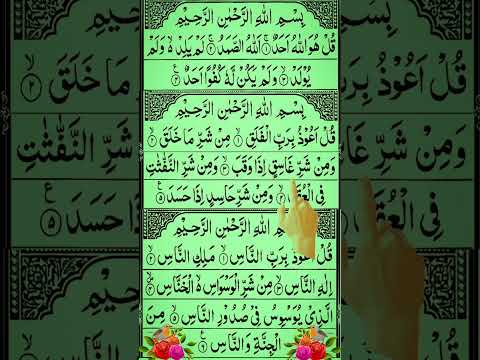 بِسْمِ اللهِ الرَّحْمٰنِ الرَّحِيْمِ
قُلْ هُوَ اللهُ اَحَدٌ ۝١ اَللهُ الصَّمَدُ ۝٢ لَمْ يَلِدْ ۙ وَلَمْ
يُوْلَدْ ۝٣ وَلَمْ يَكُنْ لَّهٗ كُفُوًا اَحَدٌ ۝٤
بِسْمِ اللهِ الرَّحْمٰنِ الرَّحِيْمِ
قُلْ اَعُوْذُ بِرَبِّ الْفَلَقِ ۝١ مِنْ شَرِّ مَا خَلَقَ ۝٢
وَمِنْ شَرِّ غَاسِقٍ اِذَا وَقَبَ ۝٣ وَمِنْ شَرِّ النَّفّٰثٰتِ
فِي ۝٤ وَمِنْ شَرِّ حَاسِدٍ اِذَا حَسَدَ ۝٥
بِسْمِ اللهِ الرَّحْمٰنِ الرَّحِيْمِ
قُلْ اَعُوْذُ بِرَبِّ النَّاسِ ۝١ مَلِكِ النَّاسِ ۝٢
اِلٰهِ النَّاسِ ۝٣ مِنْ شَرِّ الْوَسْوَاسِ ۙ الْخَنَّاسِ ۝٤
الَّذِيْ يُوَسْوِسُ فِيْ صُدُوْرِ النَّاسِ ۝٥ مِنَ
الْجِنَّةِ وَالنَّاسِ ۝٦
قُلْ اَعُوْذُ مَا خَلَقَ ۝٢
وَمِنْ شَرِّ النَّفّٰثٰتِ
فِي اِذَا حَسَدَ ۝٥